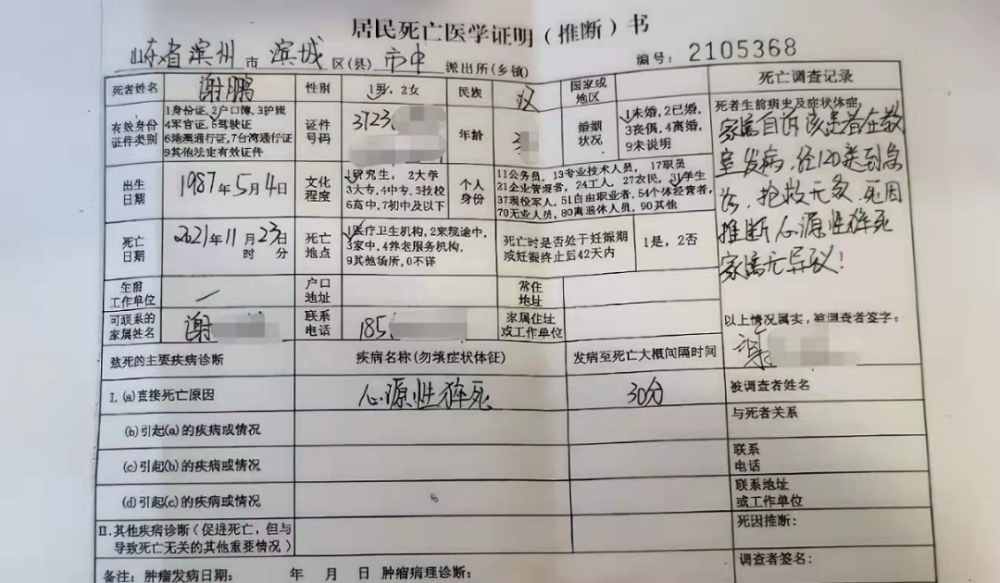 居民死亡医学证明（推断）书
山东省滨州市滨城区(县)市中派出所(乡镇)
编号：2105368
死者姓名 谢鹏 性别 1男，2女 民族 汉 国家或地区
有效身份证件类别 1身份证，2户口簿，3护照 4军官证，5驾驶证 6港澳通行证，7台湾通行证 9其他法定有效证件 证件号码 3723 年龄 3 婚姻状况 1未婚，2已婚，3丧偶，4离婚，9未说明
出生日期 1987年5月4日 文化程度 1研究生，2大学 3大专，4中专，5技校 6高中，7初中及以下 个人身份 11公务员，13专业技术人员，17职员 21企业管理者，24工人，27农民，31学生 37现役军人，51自由职业者，54个体经营者， 70无业人员，80离退休人员，90其他
死亡日期 2021年11月23日 时 分 死亡地点 1医疗卫生机构，2来院途中， 3家中，4养老服务机构， 9其他场所，0不详 死亡时是否处于妊娠期或妊娠终止后42天内 1是，2否
生前工作单位 — 户口地址 常住地址
可联系的家属姓名 谢 联系电话 185 家属住址或工作单位
致死的主要疾病诊断 疾病名称(勿填症状体征) 发病至死亡大概间隔时间
I.(a)直接死亡原因 心源性猝死 30分
(b)引起(a)的疾病或情况
(c)引起(b)的疾病或情况
(d)引起(c)的疾病或情况
II.其他疾病诊断（促进死亡，但与
导致死亡无关的其他重要情况）
备注：肿瘤发病日期： 年 月 日 肿瘤病理诊断：
死亡调查记录
死者生前病史及症状体症：
家属自诉该患者在教
室发病，经120送到急
诊，抢救无效，死因
推断心源性猝死
家属无异议！
以上情况属实，被调查者签字：
被调查者姓名
与死者关系
联系
电话
联系地址
或工作单位
死因推断：
调查者签名：